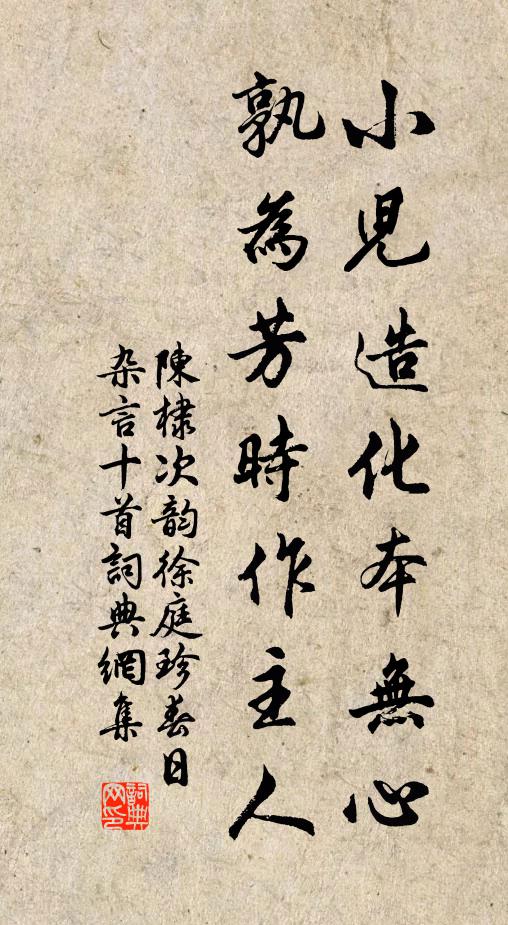 小兒造化本無心
孰為芳時作主人
陳棣次韵徐庭珍春日
杂言十首詞典網集
詞典網印